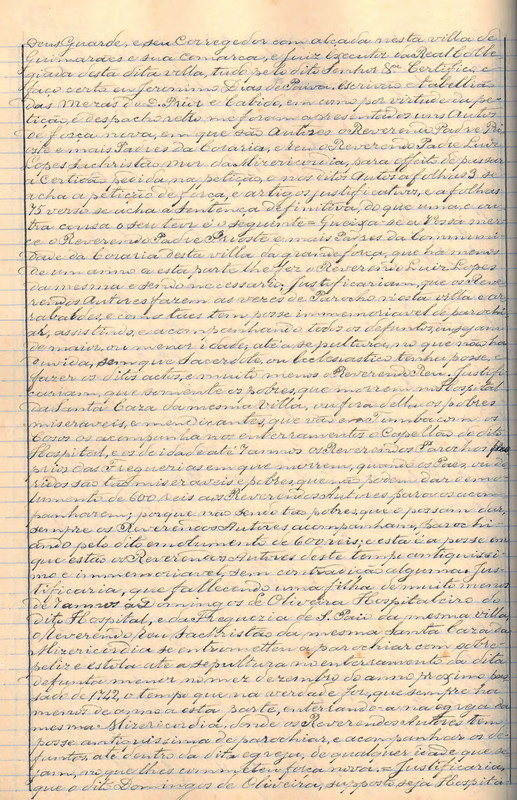 Deus Guarde, e seu Corregedor com alçada nesta villa de
Guimaraes e sua Comarca, e Juiz Executor da Real Colle
giada desta dita villa, tudo pelo dito Senhor &ª Certifico e
faço certo eu Jeronimo Dias de Escrivão e Tabellião
das Mezas do D. Prior e Cabido, em como por virtude da pe
tição, e despacho retro me foram apresentados uns Autos
de força nova, em que são Autores o Reverendo Padre Pri
oste e mais Padres da Coraria, e reu o Reverendo Padre Luiz
Lopes Sachristão Mor da Mizericordia, para effeito de passar
a Certidão pedida na petição, e nos ditos Autos a folhas 3 se
acha a petição de força, e artigos justificativos, e a folhas
75 verso se acha a Sentença definitiva, do que uma e ou
tra cousa o seu teor é o seguinte = Queixa-se a Vossa mer
ce o Reverendo Padre Prioste e mais Padres da Communi
dade da Coraria desta villa da grande força, que ha menos
de um anno a esta parte lhe fez o Reverendo Luiz Lopes
da mesma e sendo necessario, Justificariam, que os Reve
rendos Autores fazem as vezes de Parocho n'esta villa e ar
rabaldes, e como taes tem posse immemoriavel de parochi
ar, assistindo, e acompanhando todos os defuntos, ou sejam
de maior, ou menor idade, até a sepultura, no que não ha
duvida, sem que Sacerdote, ou Ecclesiastico tenha posse, e
fazer os ditos actos, e muito menos o Reverendo Reu. Justifi
cariam, que somente os pobres, que morrem no Hospital
da Santa Caza da mesma Villa, ou fora della os pobres
miseraveis, e mendicantes, que vão em Tumba com os
Cosos os acompanha no enterramentos o Capellão do dito
Hospital, e os de idade até 7 annos os Reverendos Parochos pro
prios das Freguezias em que morrem, quando os Paes, ou de
vidos são tão miseraveis e pobres, que não podem dar o emo
lumento de 600 reis aos Reverendos Autores para os acom
panharem; porque não sendo tão pobres, que o possam dar,
sempre os Reverendos Autores acompanham, parochi
ando pelo dito emolumento de 600 reis; e esta é a posse em
que estão os Reverendos Autores deste tempo antiquissi
mo e immemoriavel, sem contradição alguma. Jus
tificaria, que fallecendo uma filha de muito menos
de 7 annos a Domingos de Oliveira Hospitaleiro do
dito Hospital, e da Freguezia de S. Paio da mesma villa,
o Reverendo Reu Sachristão da mesma Santa Caza da
Mizericordia se entrometteu a parochiar com sobre
peliz e estola até a sepultura no enterramento da dita
defunta menor no mez dezembro do anno proximo pas
sado de 1742, o tempo que na verdade foi, que sempre ha
menos de anno a esta parte, enterrando-a na egreja da
mesma Mizericordia, donde os Reverendos Autores tem
posse antiquissima de parochiar, e acompanhar os de
funtos, até dentro da dita egreja, de qualquer idade que se
jam, no que lhes commetteu força nova. = Justificaria,
que o dito Domingos de Oliveira, supposto seja Hospita